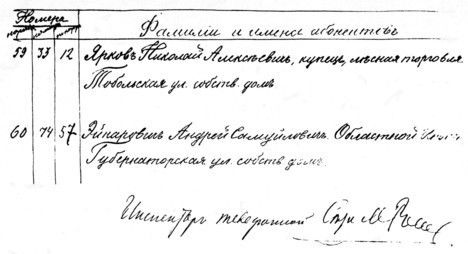 Номера Фамиліи и имена абонентовъ
59 33 12 Ярковъ Николай Алексѣевичъ, купецъ, лѣсная торговля
Тобольская ул. собств. домъ
60 74 57 Эйнаровичъ Андрей Самуйловичъ. Областной
Губернаторская ул. собств. домъ.
Инспекторъ телефонной